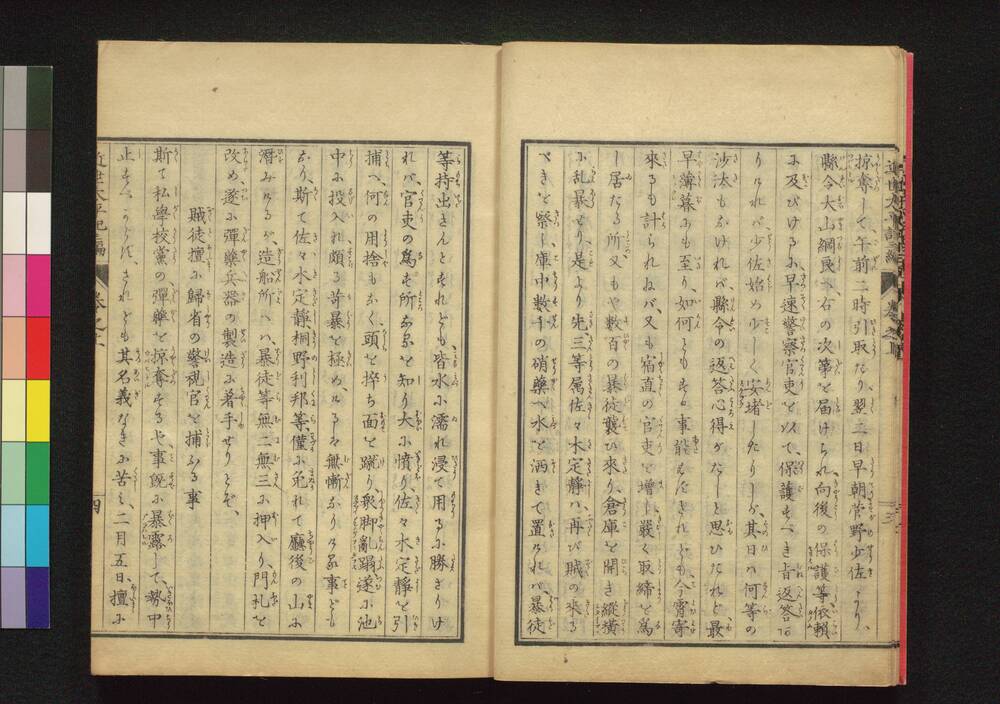 掠奪して午前二時引取たり、翌二日早朝菅野少佐より、
縣令大山綱良へ右の次第を届けられ、向後の保護等依頼
に及びけるに、早速警察官吏を以て、保護すべき旨返答あ
りければ、少佐始め少しく安堵したりしが、其日ハ何等の
沙汰もなければ、縣令の返答心得がたしと思ひたれど最
早薄暮にも至り、如何ともする事能はざれども今宵寄
來るも計られねバ、又も宿直の官吏を增し嚴く取締を為
し居たる所、又もや數百の暴徒襲ひ來り、倉庫を開き縱横
に乱暴せり、是より先三等属佐々木定静ハ、再び賊の來る
べきを察し庫中數千の硝藥へ水を洒ぎて置ければ、暴徒
等持出さんとすれども、皆水に濡れ浸て用るに勝ざりけ
れバ、官吏の為す所なるを知り大に憤り佐々木定靜を引
捕へ、何の用捨もなく頭を捽ち面を蹴り衆脚亂蹋遂に池
中に投入れ頗る苛暴を極めけるは無慚なりける事どもな
り、斯て佐々木定靜、桐野利邦等、僅に免れて廳後の山に
潛みけるが、造船所へハ、暴徒等無二無三に押入り、門札を
改め、遂に彈藥兵器の製造に着手せりとぞ、
賊徒擅に歸省の警視官を捕ふる事
斯て私學校黨の彈藥を掠奪するや、事既に暴露して、勢中
止すべからず、されども其名義なきに苦ミ、二月五日、擅に
近世太平記二編
卷之二
四